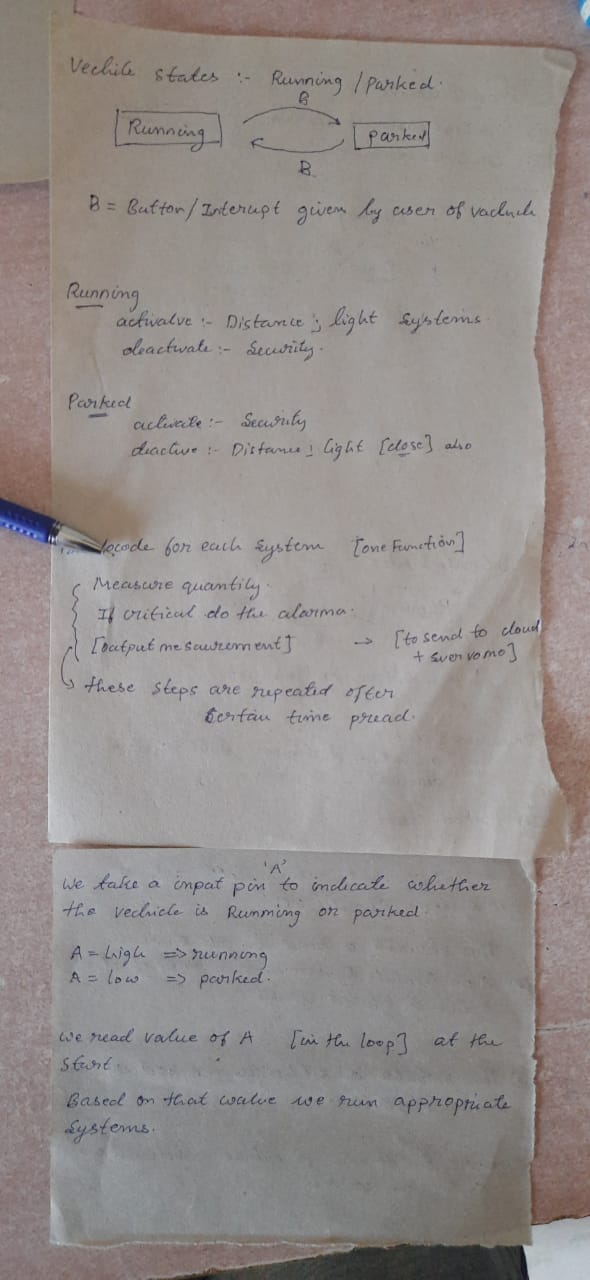 Vechile states :- Running / Parked.
B
Running
parked
B
B = Button/Interupt given by user of
Running
activalve :- Distance ; light Systems.
deactivate :- Security.
Parked
activate :- Security
deactive :- Distance ; light [close] also
code for each system [one Function]
Measure quantity.
If critical do the alarma.
[output mesaurement] → [to send to cloud
+]
these steps are repeated after
certain time pread.
'A'
We take a input pin to indicate whether
the vechicle is Running or parked.
A = high => running
A = low => parked.
we read value of A [in the loop] at the
start.
Based on that walve we run appropriate
systems.